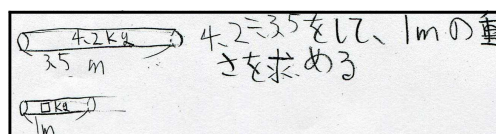 4.2kg
3.5 m
4.2÷3.5をして、1mの重
さを求める
□kg
1m